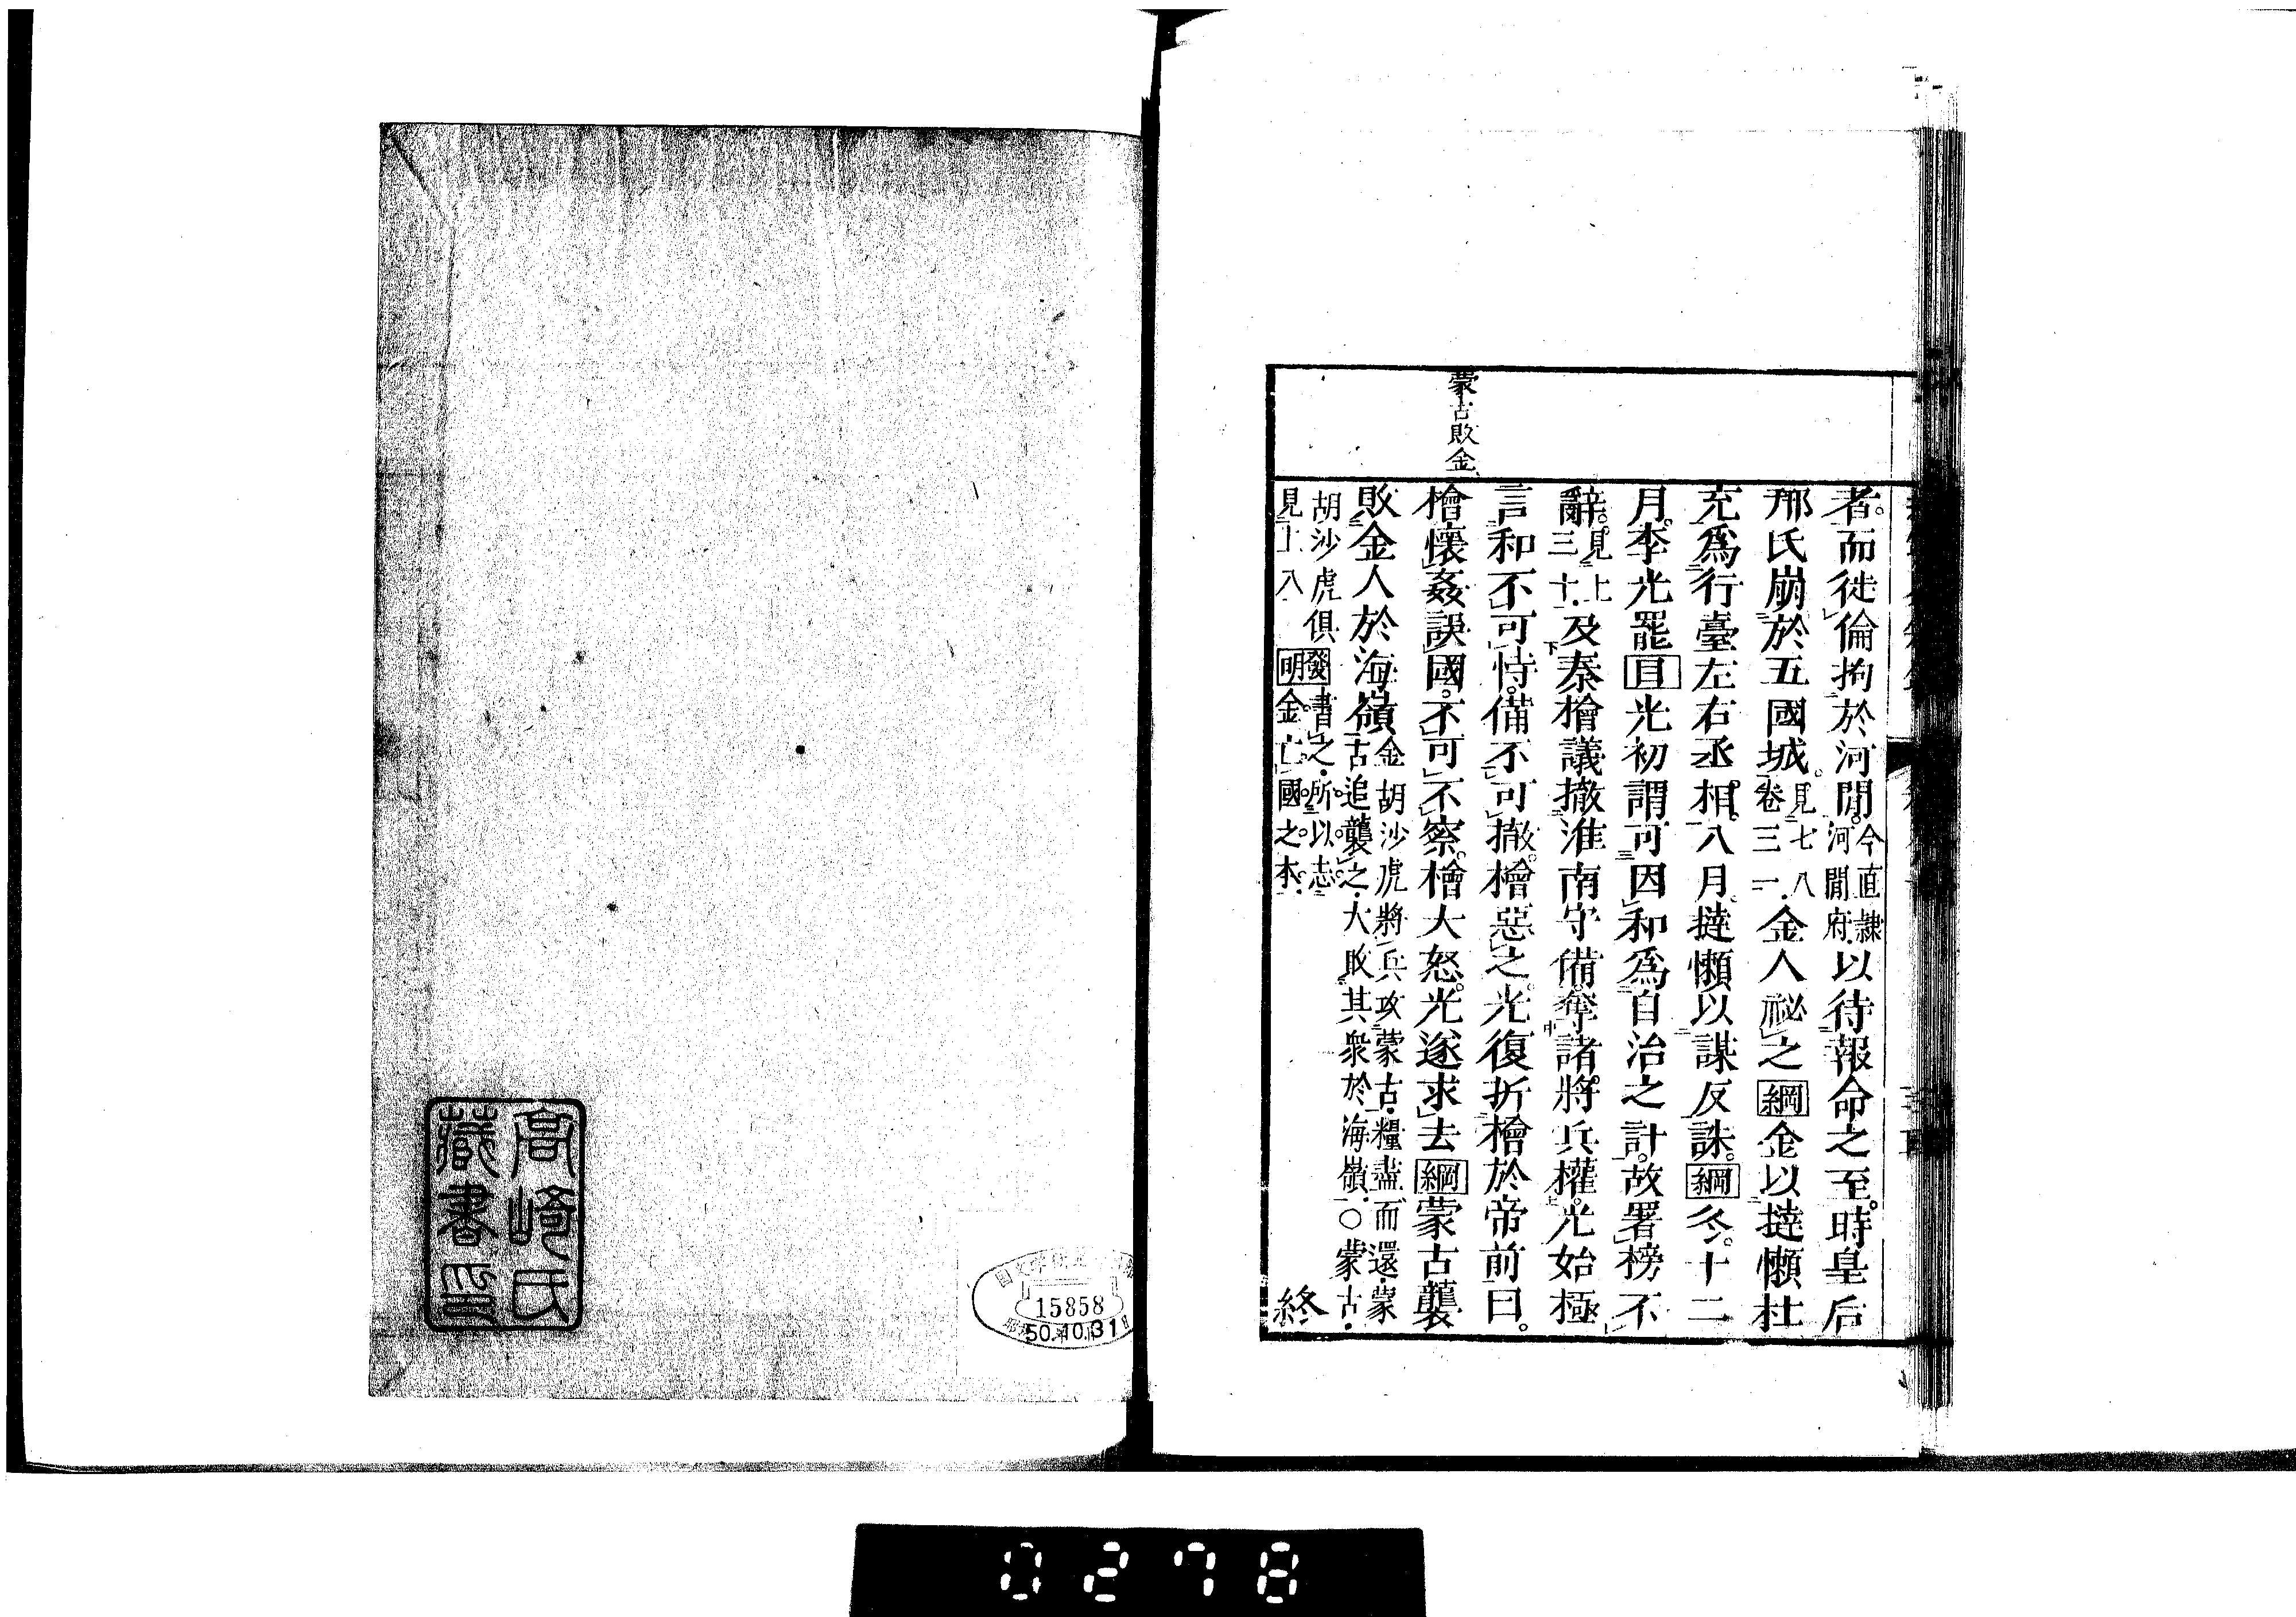 蒙古敗金
者。而徙倫拘於河間。今直隷河間府以待報命之至。時皇后
邢氏崩於五國城。見七八卷三一金人祕之綱金以撻懶杜
充爲行臺左右丞相。八月撻懶以謀反誅。綱冬。十二
月。李光罷目光初謂可因和爲自治之計。故署榜不
辭。見上三十及秦檜議撤淮南守備。奪諸將兵權。光始極
言和不可恃。備不可撤。檜惡之。光復折檜於帝前曰。
檜懷姦誤國。不可不察。檜大怒。光遂求去綱蒙古襲
敗金人於海嶺金胡沙虎將兵攻蒙古糧盡而還蒙古追襲之大敗其衆於海嶺○蒙古
胡沙虎俱見上八發明書之所以志金亡國之本
終
高崎氏
藏書印
15858
50.10.31
0278